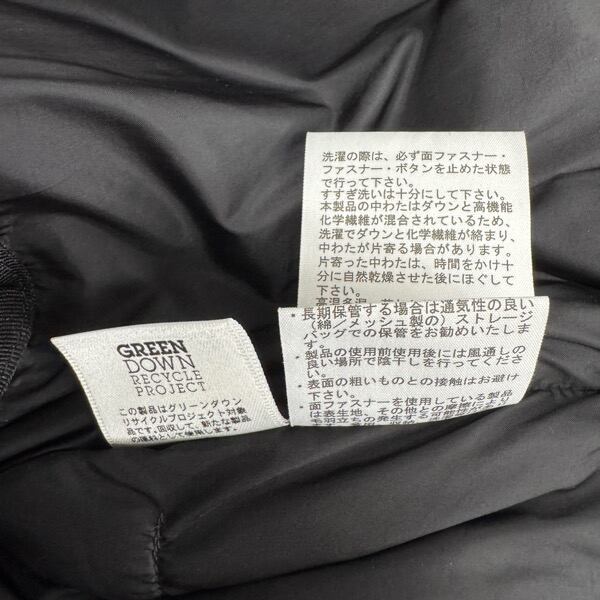 洗濯の際は、必ず面ファスナー・
ファスナー・ボタンを止めた状態
で行って下さい。
すすぎ洗いは十分にして下さい。
本製品の中わたはダウンと高機能
化学繊維が混合されているため、
洗濯でダウンと化学繊維が絡まり、
中わたが片寄る場合があります。
片寄った中わたは、時間をかけ十
分に自然乾燥させた後にほぐして
下さい。
・長期保管する場合は通気性の良い
(綿／メッシュ製の)ストレージ
バッグでの保管をお勧めいたしま
す。
・製品の使用前使用後には風通しの
良い場所で陰干しを行ってくださ
い。
・表面の粗いものとの接触はお避け
下さい。
・面ファスナーを使用している製品
は表生地、その他との摩擦により
毛羽立ちの発生する可能性が
GREEN
DOWN
RECYCLE
PROJECT
この製品はグリーンダウン
リサイクルプロジェクト対象
品です。回収して、新たな製品
の原料として使用します。